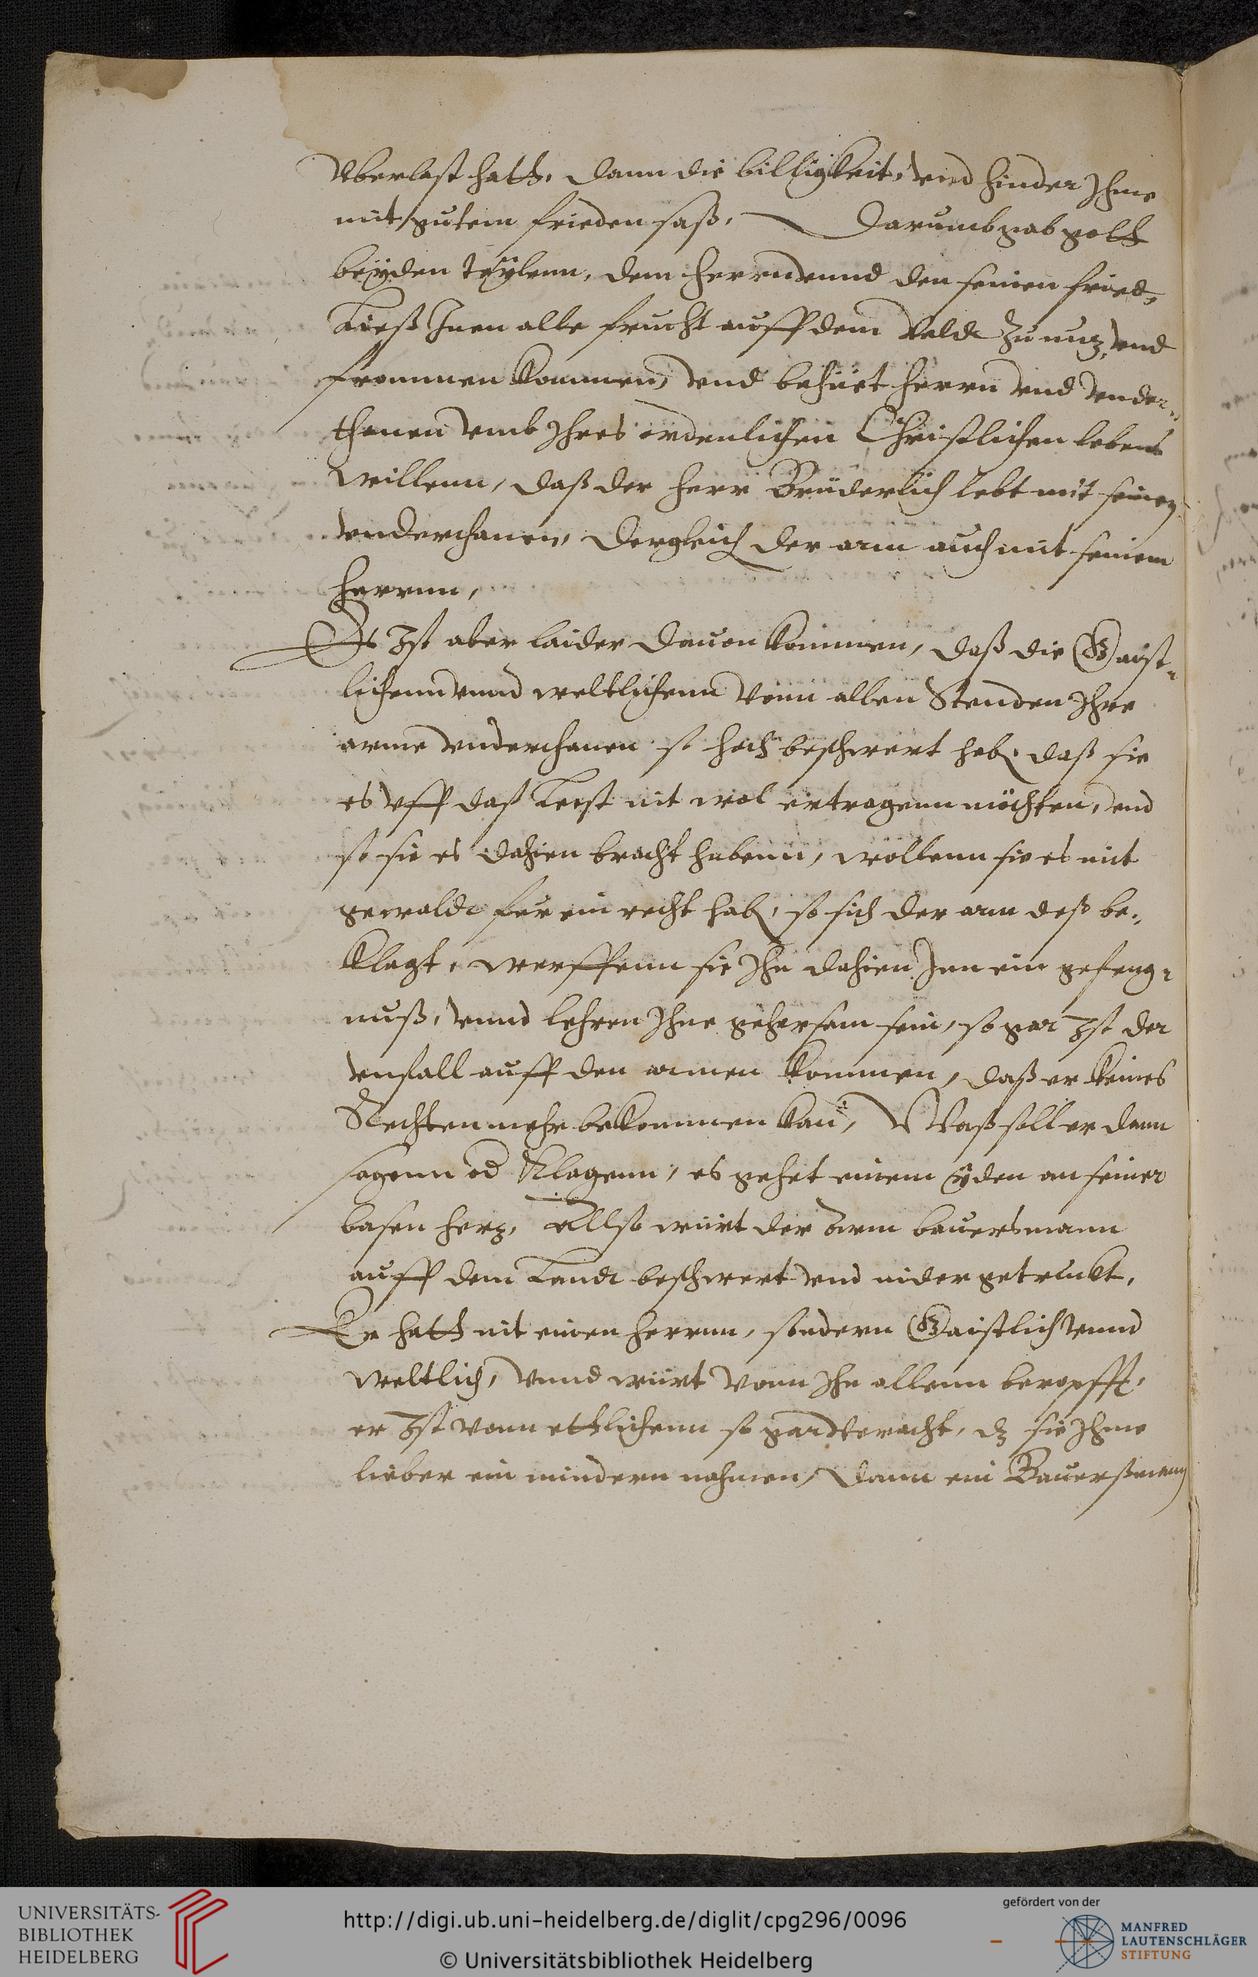 Vberlast hatt. dann die billigkeit, vnd hinder Ihme
mit gutem frieden saß, Darumb gab gott
beÿden teÿlenn, dem herrn vnnd den seinen fried,
Ließ Inen alle frucht auff dem Veldt zu nutz, vnd
frommen kommen, vnd behüet herrn vnd vnder-
thanen vmb Ihres ordenlichen Christlichen lebens
willenn, daß der herr Brüderlich lebt mit seinen
vnderthanen, dergleich der arm auch mit seinem
herrnn,
Es Ist aber laider dauon kommen, daß die Gaist-
lichenn vnnd weltlichenn vonn allen Stenden Ihre
arme vnderthanen so hoch beschwert hab. daß sie
es vff daß Letst nit wol ertragenn möchten, vnd
so sie es dahien bracht habenn, wöllenn sie es mit
gewaldt für ein recht hab, so sich der arm deß be-
klagt, werffenn sie Ihn dahien Inn ein gefeng-
nuß, vnnd lehren Ihne gehorsam sein, so gar Ist der
vnfall auff den armen kommen, daß er keines
Rechten mehr bekommen kan, Waß soll er dann
sagenn od Klagenn, es gehet einem ÿden an seiner
basen hertz, Allso würt der arm bauersmann
auff dem Landt beschwert vnd nider getruckt,
Er hatt nit einen herrnn, sondern Gaistlich vnnd
weltlich, vnnd würt vonn Ihn allenn beropfft,
er Ist vonn ettlichenn so gar veracht, dz sie Ihme
lieber ein mindern nahmen, dann ein Baurßmann
UNIVERSITÄTS-
BIBLIOTHEK
HEIDELBERG
http://digi.ub.uni-heidelberg.de/diglit/cpg296/0096
© Universitätsbibliothek Heidelberg
gefördert von der
MANFRED
LAUTENSCHLÄGER
STIFTUNG